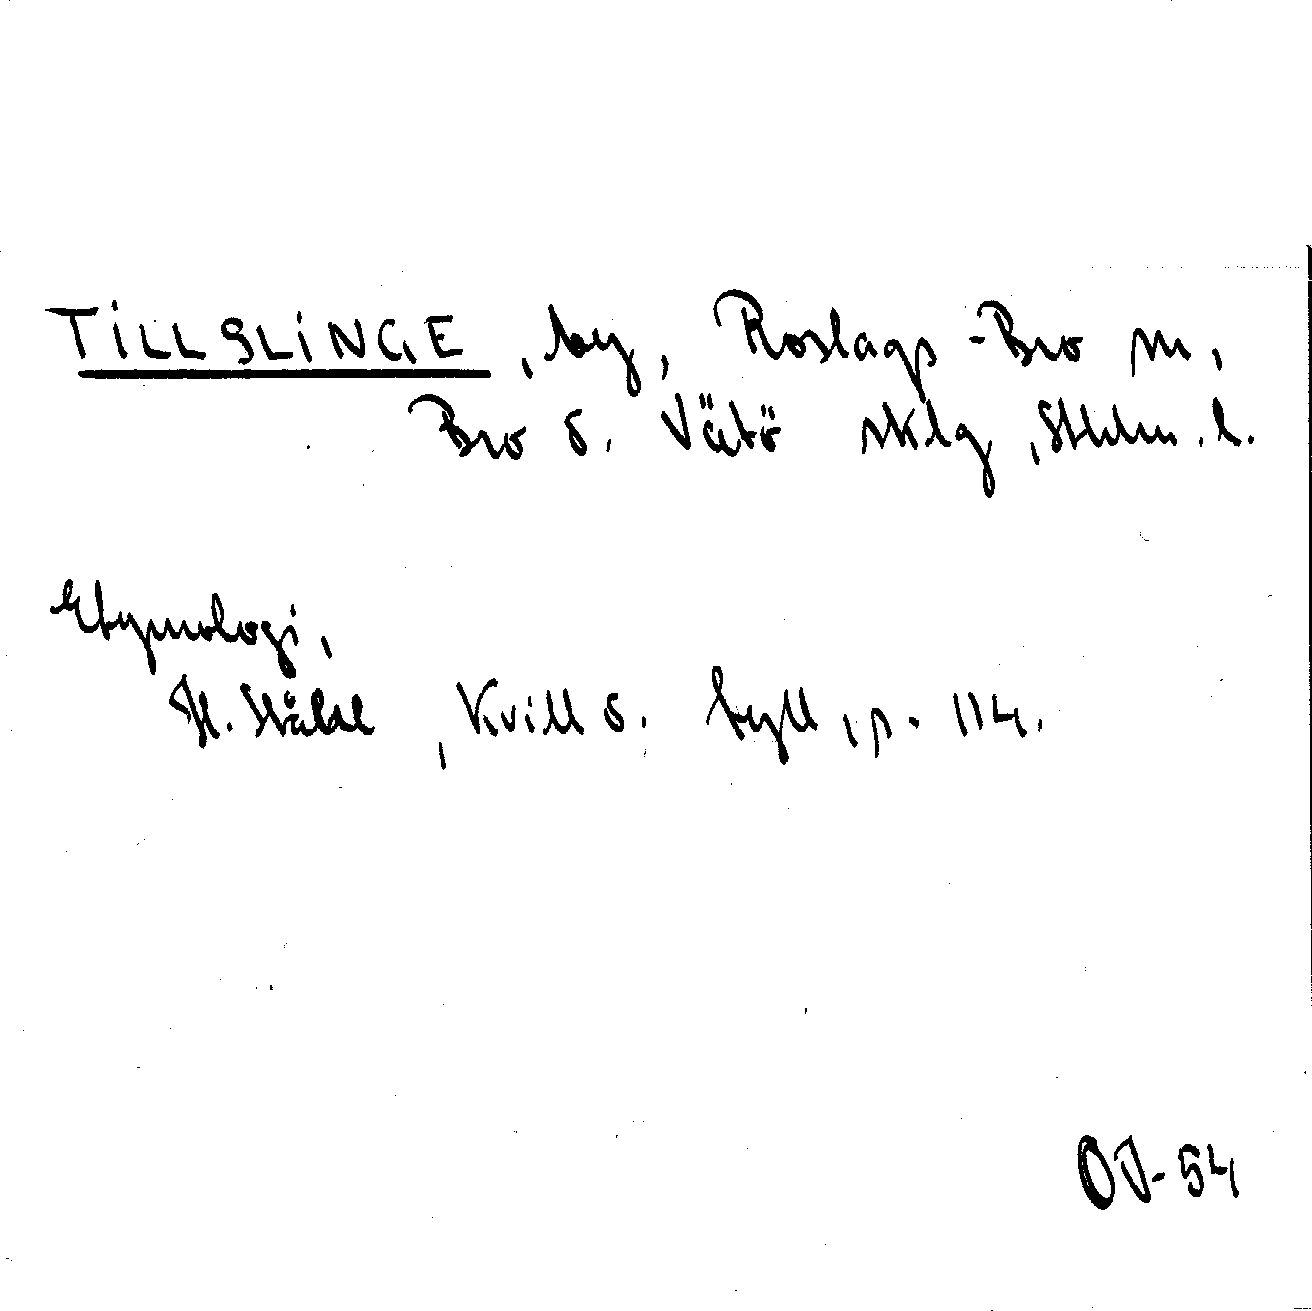 TILLSLINGE, by, Roslags-Bro sn,
Bro o. Vätö sklg, Sthlm. l.
Etymologi,
H. Ståhl, Kvill o. tyll, p. 114.
OJ-54